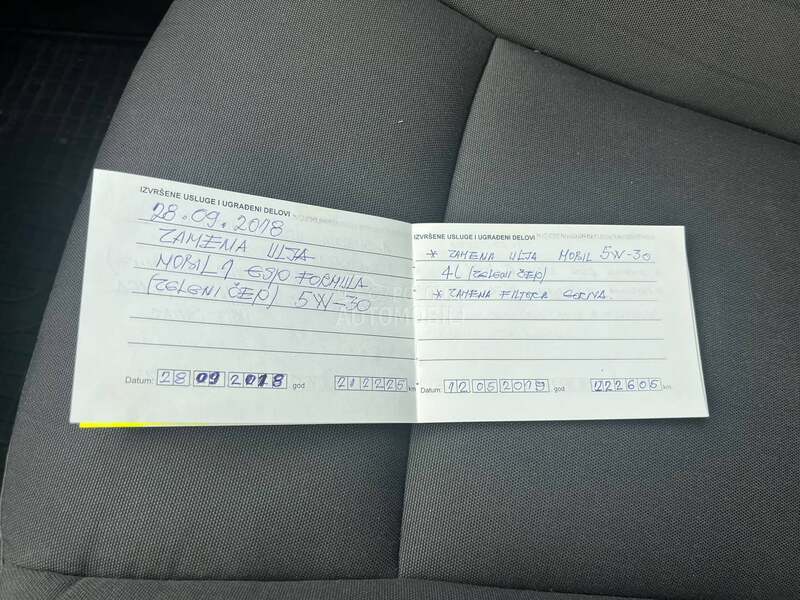 IZVRŠENE USLUGE I UGRAĐENI DELOVI
28.09.2018
ZAMENA ULJA
MOBIL 1 ESP FORMULA
(ZELENI ČEP) 5W-30
Datum: 28 09 2018 god 212225 km
IZVRŠENE USLUGE I UGRAĐENI DELOVI
* ZAMENA ULJA MOBIL 5W-30
4L (ZELENI ČEP)
* ZAMENA FILTERA GORIVA.
Datum: 12 05 2019 god 222605 km
AUTOMOBILI